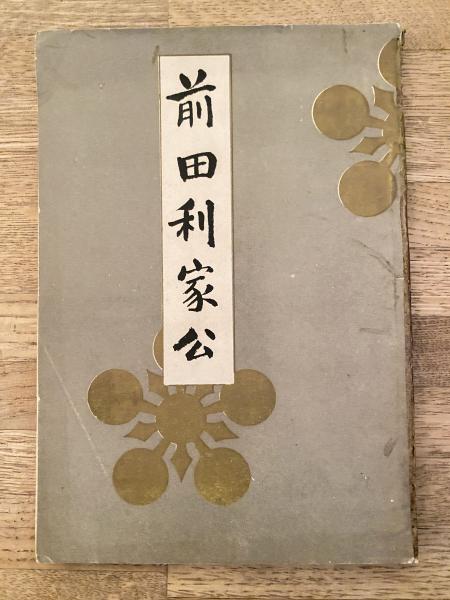 前田利家公